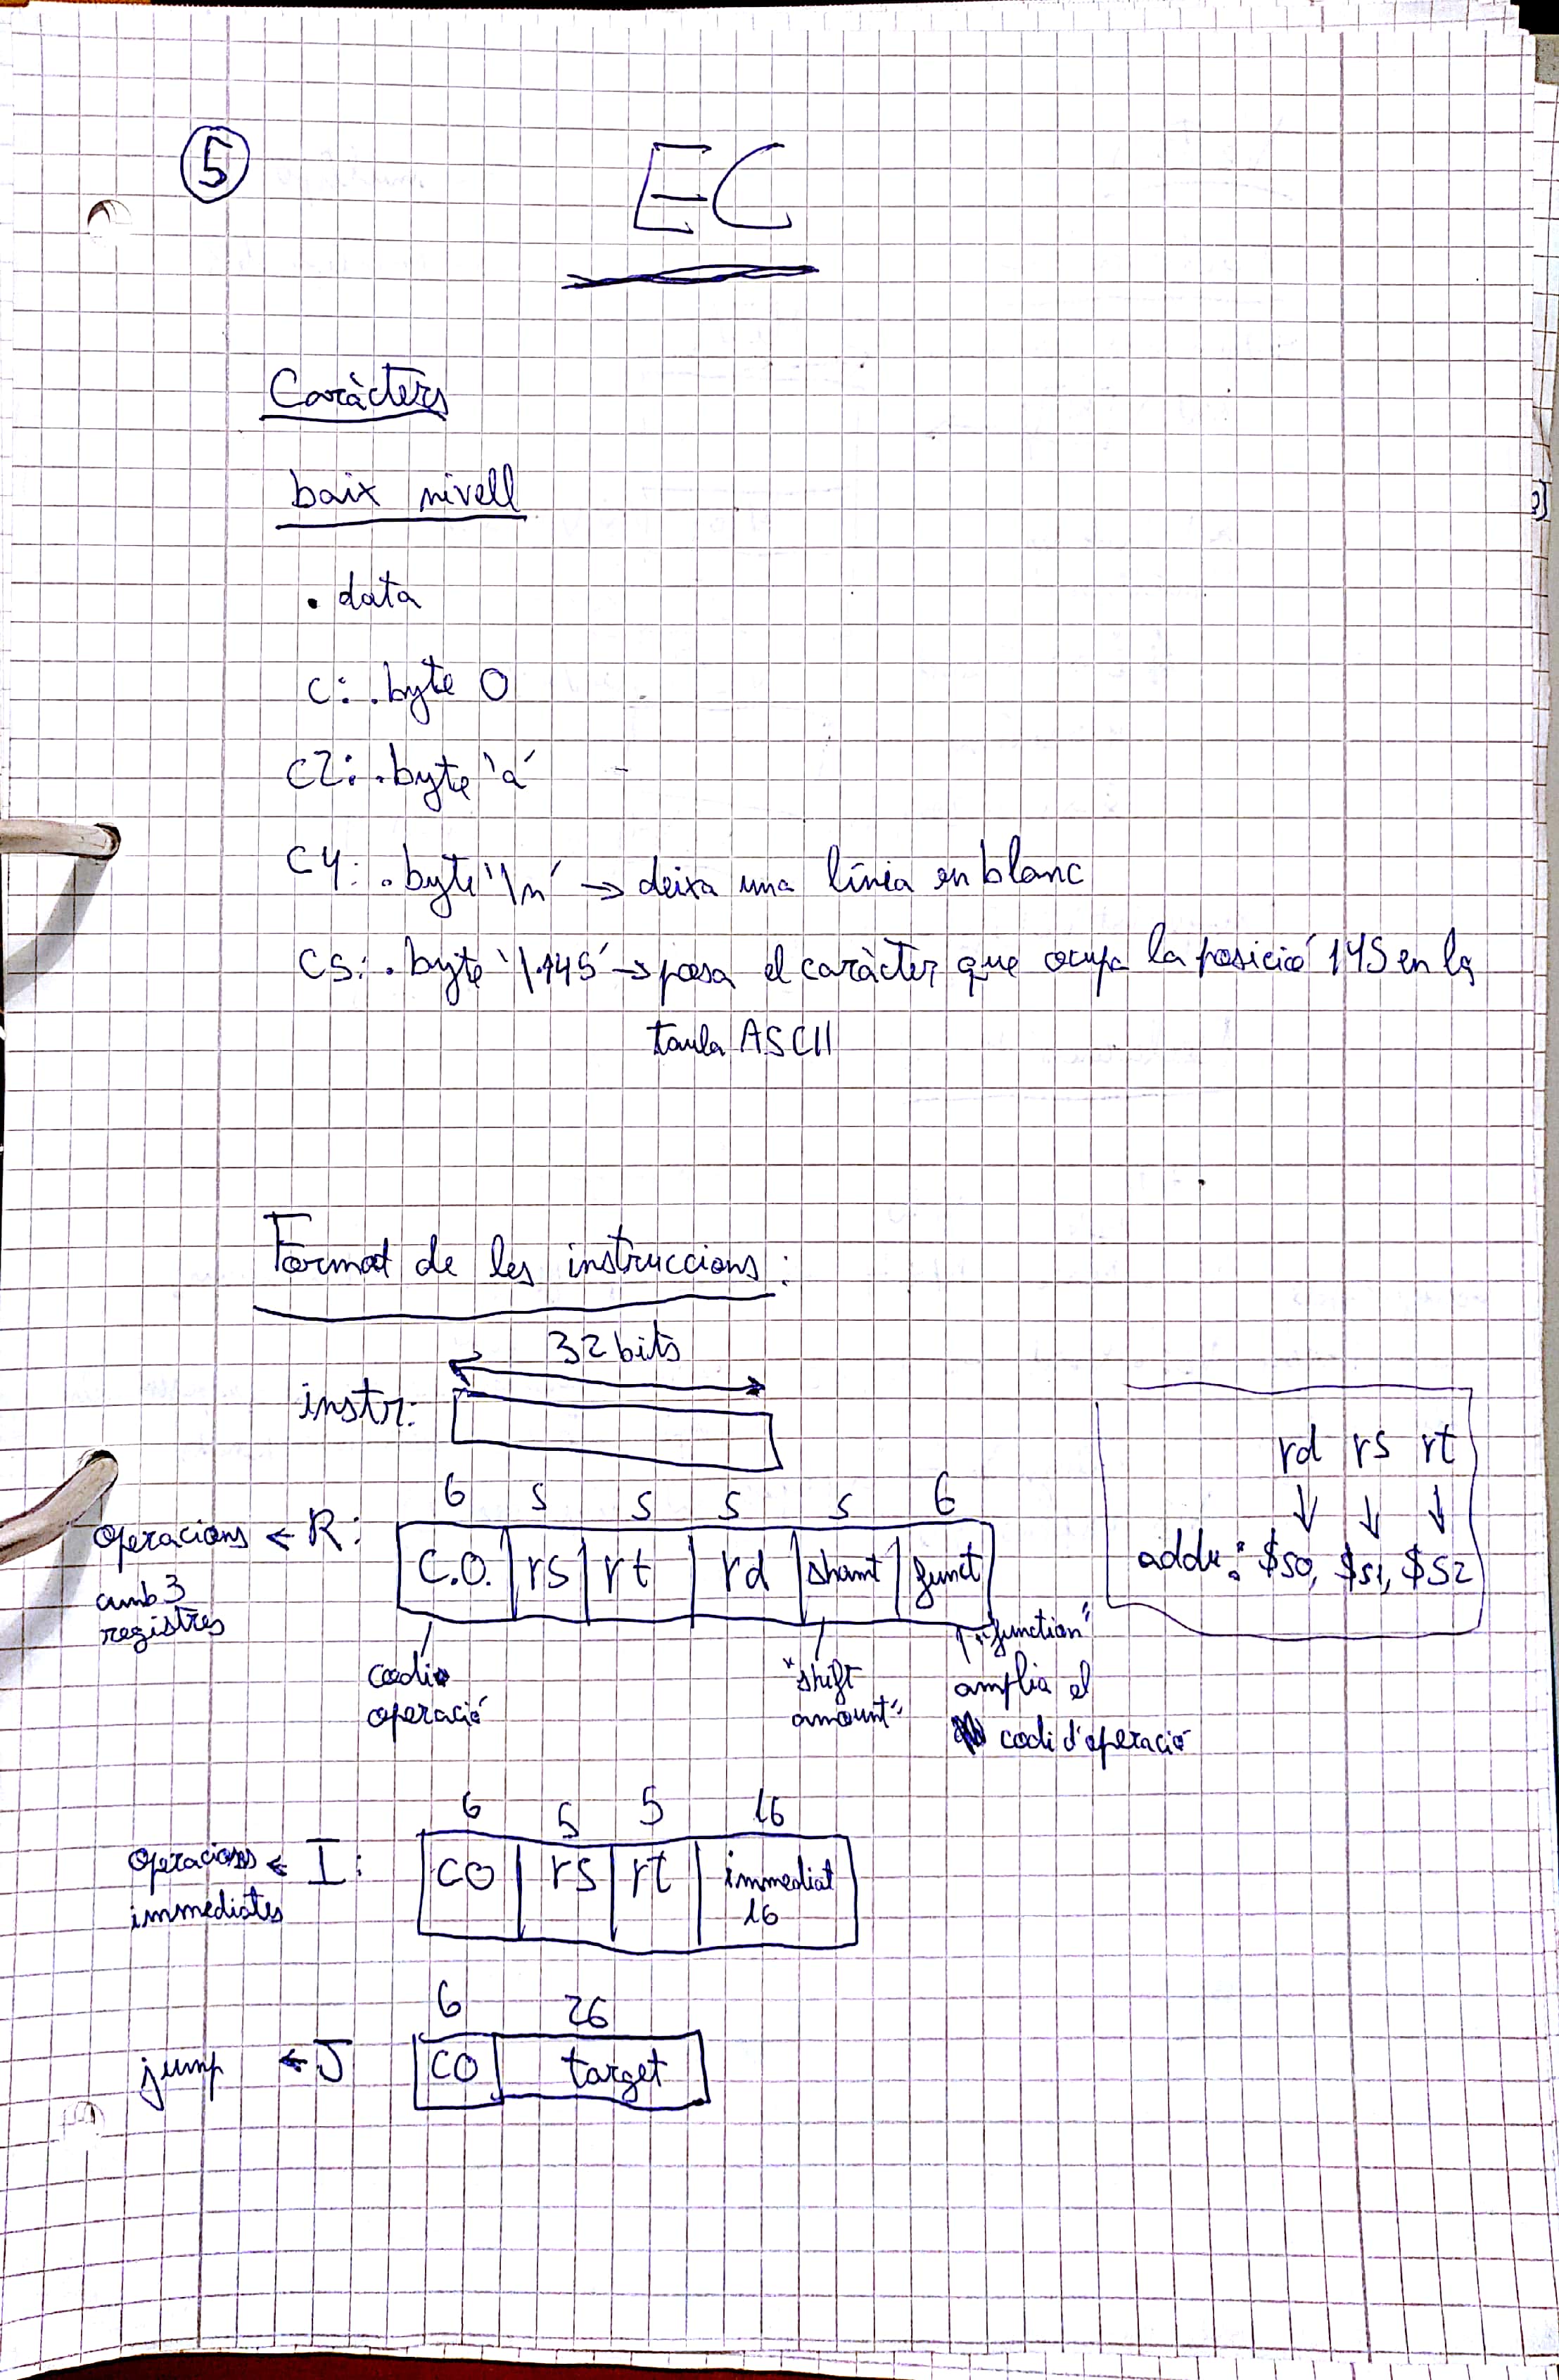 5
EC
Caràcters
baix nivell
.data
C: .byte 0
C2: .byte 'a'
C4: .byte '\n' → deixa una línia en blanc
C5: .byte '\145' → posa el caràcter que ocupa la posició 145 en la
taula ASCII
Format de les instruccions:
32 bits
instr:
rd rs rt
↓ ↓ ↓
addu: $s0, $s1, $s2
6 5 5 5 5 6
operacions ← R: C.O. rs rt rd shamt funct
amb 3
registres
codi
operació
"shift
amount"
"function"
amplia el
codi d'operació
6 5 5 16
operacions ← I: CO rs rt immediat
immediates
16
6 26
jump ← J CO target